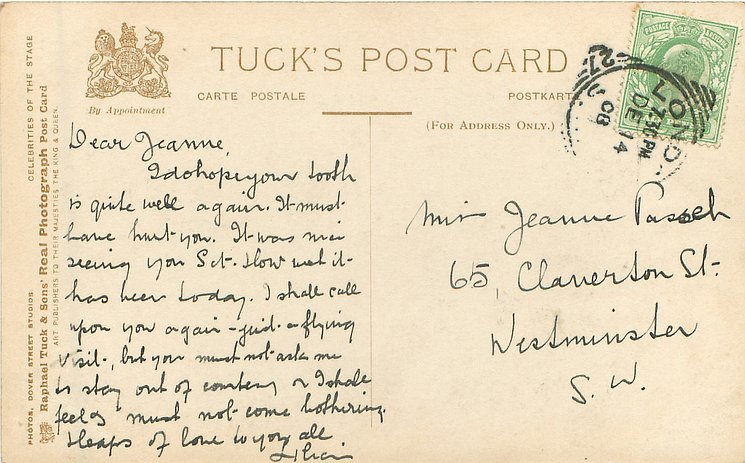 TUCK'S POST CARD
By Appointment
CARTE POSTALE
POSTKART
(FOR ADDRESS ONLY.)
CELEBRITIES OF THE STAGE
PHOTOS, DOVER STREET STUDIOS
Raphael Tuck & Sons' Real Photograph Post Card
ART PUBLISHERS TO THEIR MAJESTIES THE KING & QUEEN.
LOND
7.30 PM
DE 14
08
27
POSTAGE
Dear Jeanne,
I do hope your tooth
is quite well again. It must
have hurt you. It was nice
seeing you Sat. How wet it
has been today. I shall call
upon you again - just a flying
visit, but you must not ask me
to stay out of courtesy or I shall
feel I must not come bothering.
Heaps of love to you all
Lilian
Miss Jeanne
65, Claverton St.
Westminster
S. W.